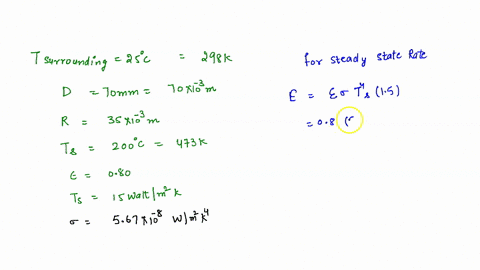 T surrounding = 25°C = 298k
D = 70mm = 70×10⁻³m
R = 35×10⁻³m
Ts = 200°C = 473k
ε = 0.80
Ts = 15 watt/m² k
σ = 5.67×10⁻⁸ W/m² k⁴
for steady state Rate
E = εσT⁴s (1.5)
= 0.8 (5